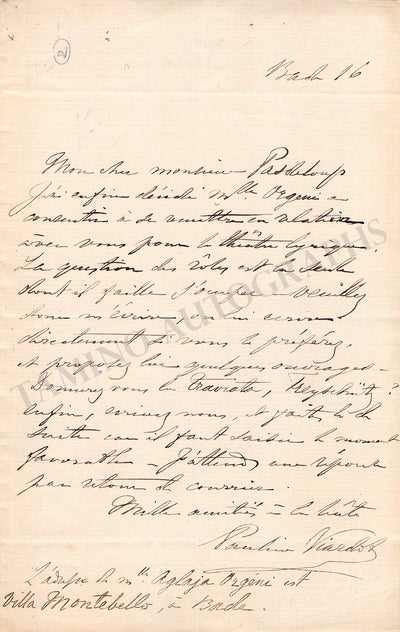 2
Bade 16
Mon cher monsieur Pasdeloup
J'ai enfin décidé Mlle Orgeni a
consentir à se mettre en relation
avec vous pour le théâtre lyrique.
La question des rôles est la seule
dont il faille s'occuper - veuillez
donc m'écrire, ou lui écrire
directement si vous le préférez,
et proposez lui quelques ouvrages -
Donnerez vous la Traviata, Freyschütz?
Enfin, écrivez nous, et faites le de
suite car il faut saisir le moment
favorable - J'attends une réponse
par retour de courrier.
Mille amitiés à la hâte
Pauline Viardot
L'adresse de Mlle Aglaja Orgéni est
Villa Montebello, à Bade.
TAMINO AUTOGRAPHS